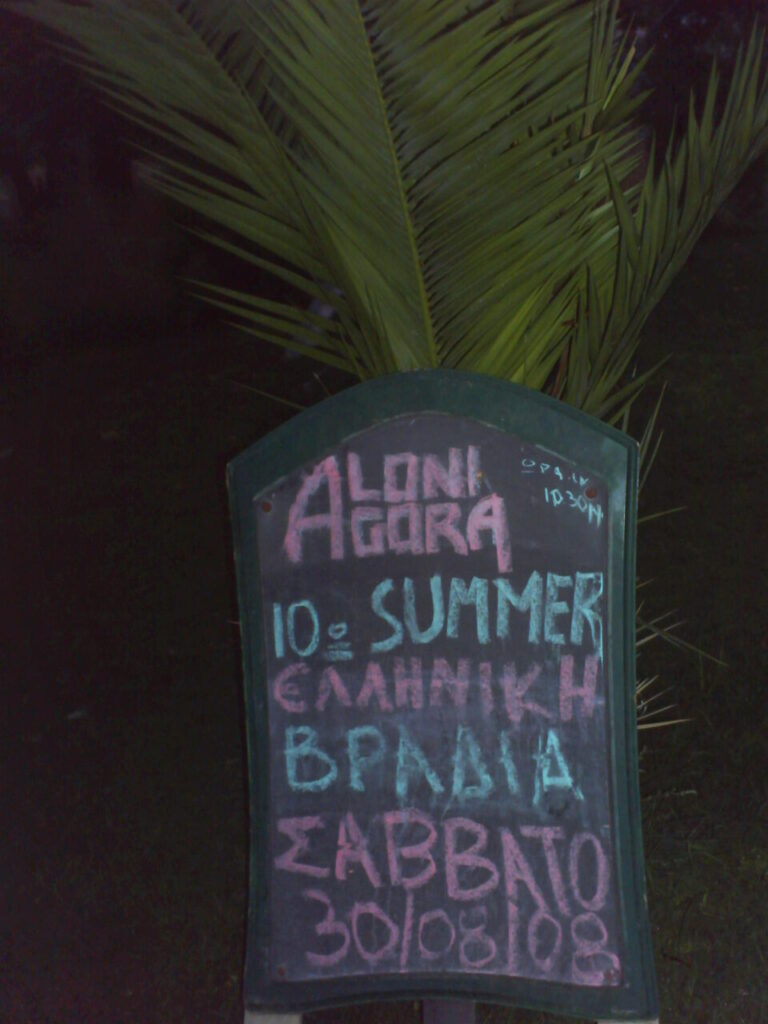 ALONI
AGORA
ΩΡΑ
10.30
10º SUMMER
ΕΛΛΗΝΙΚΗ
ΒΡΑΔΙΑ
ΣΑΒΒΑΤΟ
30/08/08